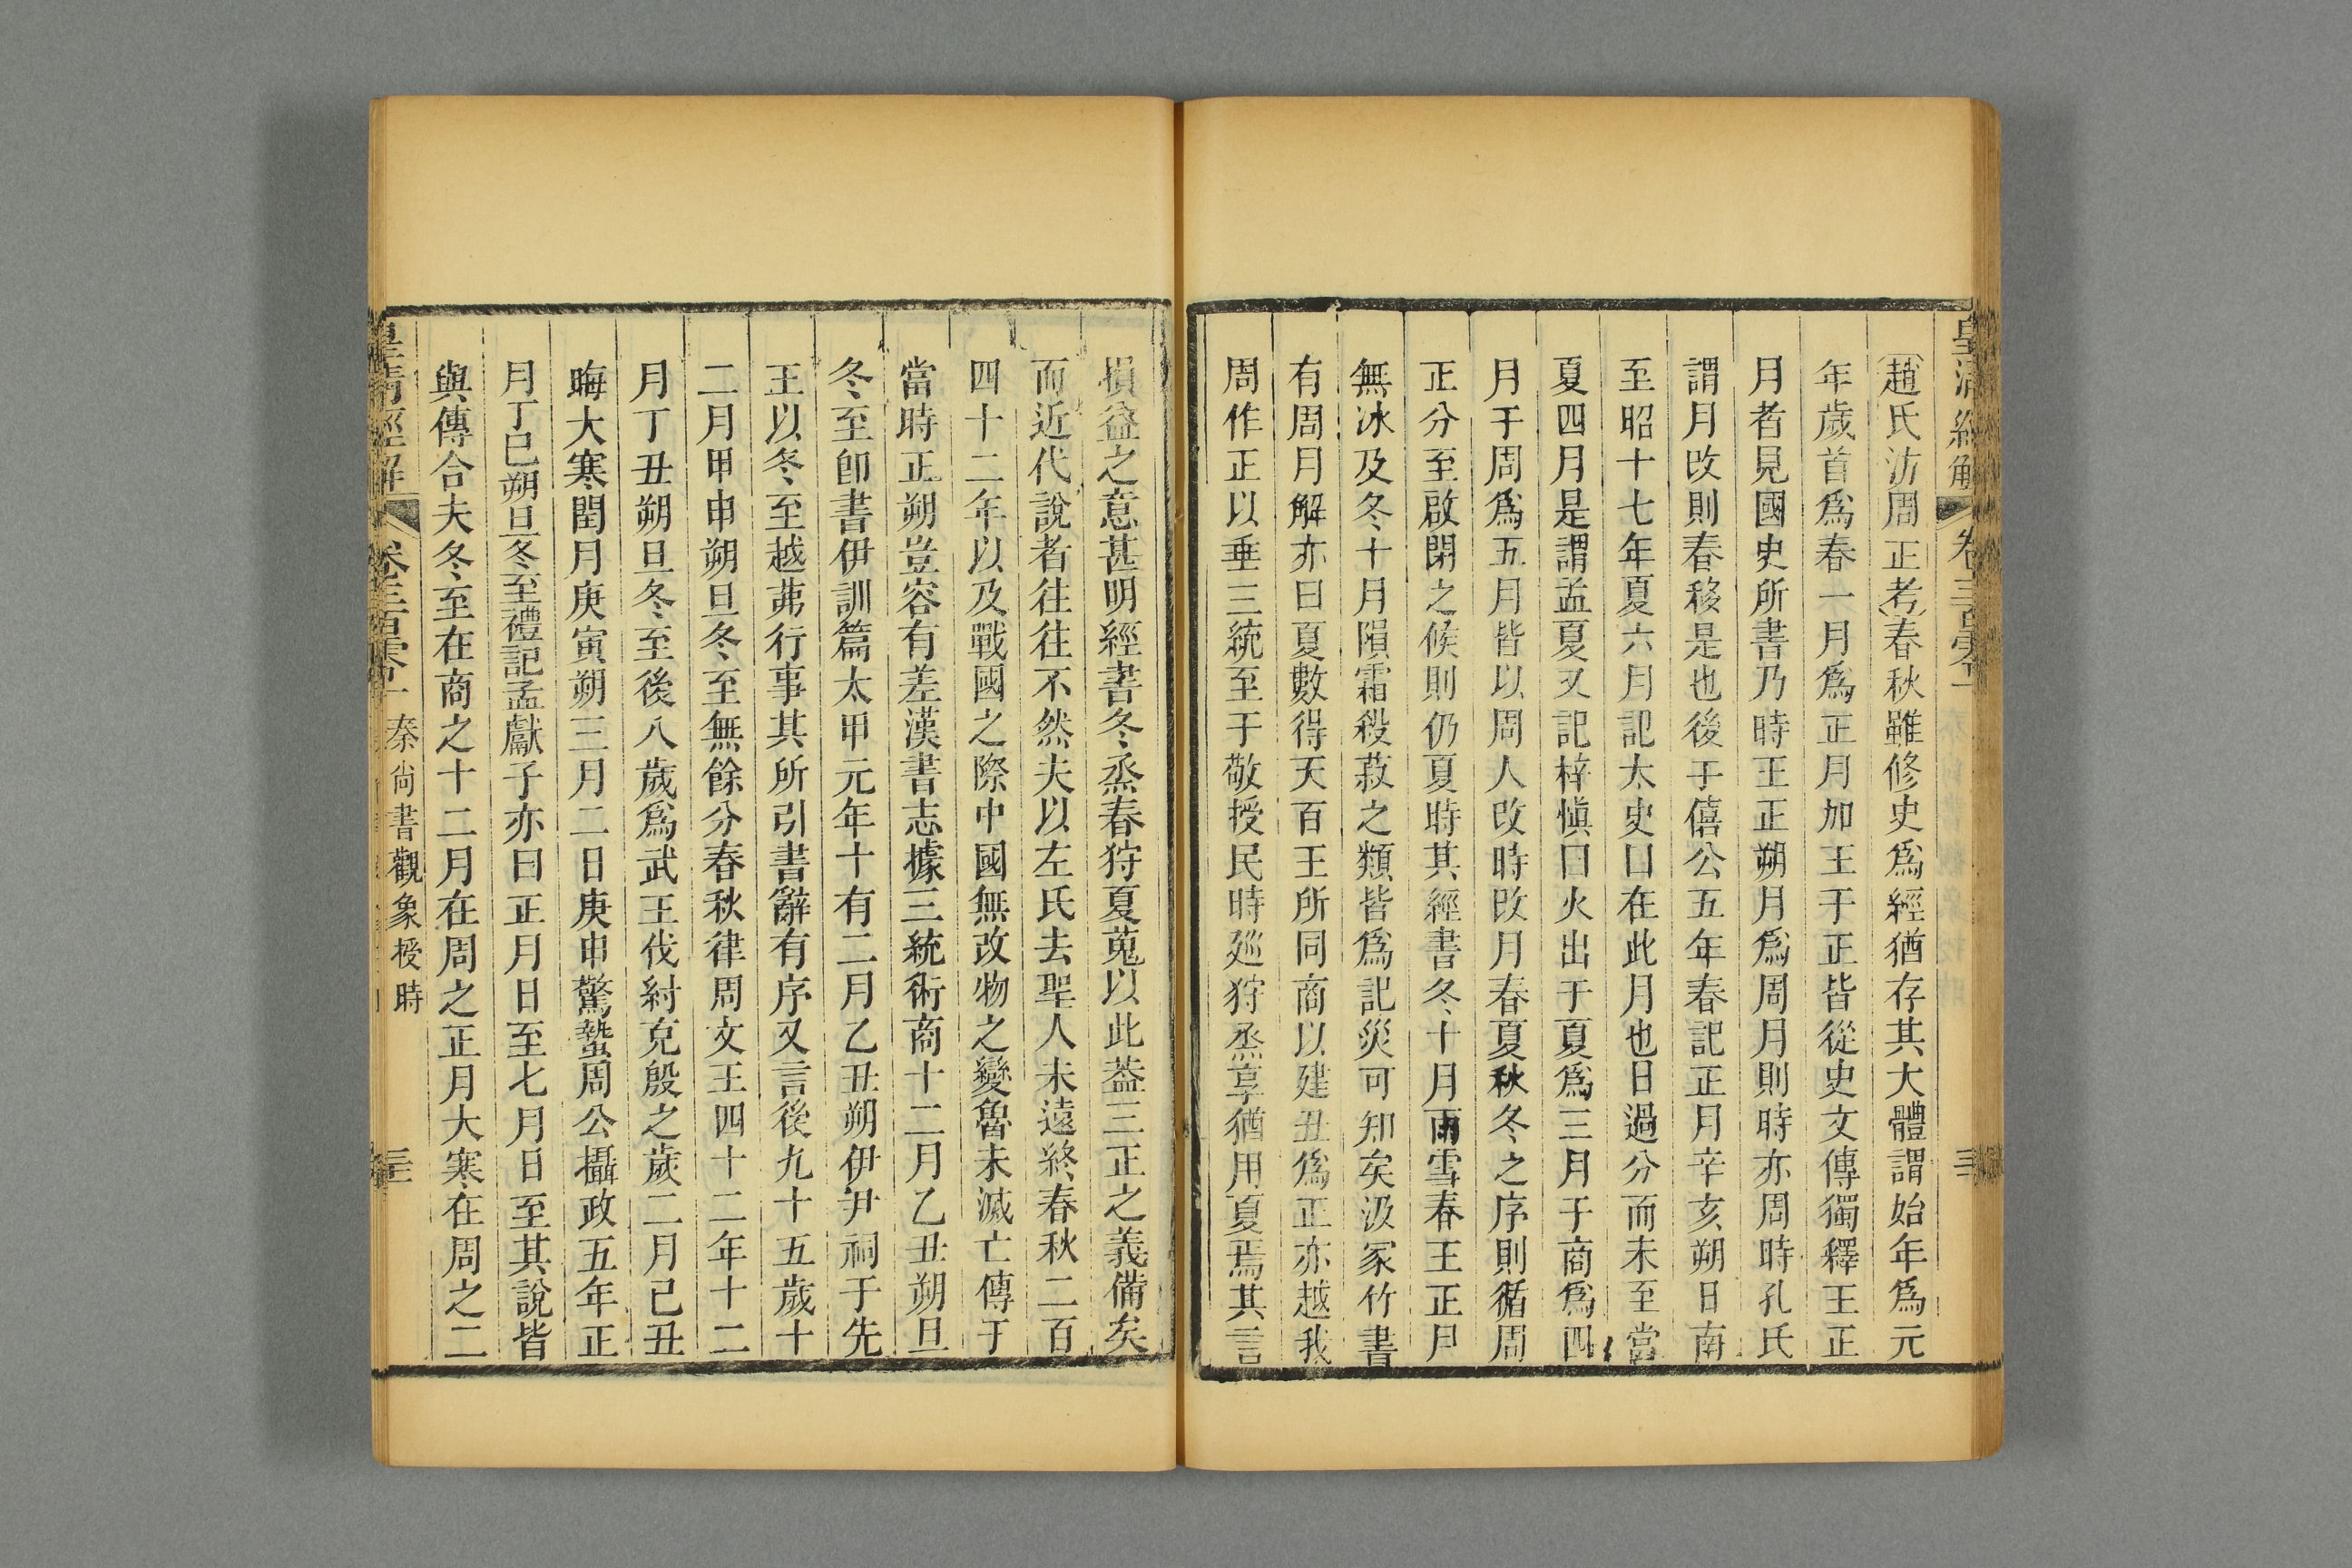 皇清經解 卷三百零一
趙氏汸周正考春秋雖修史爲經猶存其大體謂始年爲元
年歲首爲春一月爲正月加王于正皆從史文傳獨釋王正
月者見國史所書乃時王正朔月爲周月則時亦周時孔氏
謂月改則春移是也後于僖公五年春記正月辛亥朔日南
至昭十七年夏六月記太史曰在此月也日過分而未至當
夏四月是謂孟夏又記梓愼曰火出于夏爲三月于商爲四
月于周爲五月皆以周人改時改月春夏秋冬之序則循周
正分至啟閉之候則仍夏時其經書冬十月雨雪春王正月
無冰及冬十月隕霜殺菽之類皆爲記災可知矣汲冢竹書
有周月解亦曰夏數得天百王所同商以建丑爲正亦越我
周作正以垂三統至于敬授民時廵狩烝享猶用夏焉其言
損益之意甚明經書冬烝春狩夏蒐以此葢三正之義備矣
而近代說者往往不然夫以左氏去聖人未遠終春秋二百
四十二年以及戰國之際中國無改物之變魯未滅亡傳于
當時正朔豈容有差漢書志據三統術商十二月乙丑朔旦
冬至卽書伊訓篇太甲元年十有二月乙丑朔伊尹祠于先
王以冬至越茀行事其所引書辭有序又言後九十五歲十
二月甲申朔旦冬至無餘分春秋律周文王四十二年十二
月丁丑朔旦冬至後八歲爲武王伐紂克殷之歲二月己丑
晦大寒閏月庚寅朔三月二日庚申驚蟄周公攝政五年正
月丁巳朔旦冬至禮記孟獻子亦曰正月日至七月日至其說皆
與傳合夫冬至在商之十二月在周之正月大寒在周之二
皇清經解 卷三百零一 秦尙書觀象授時